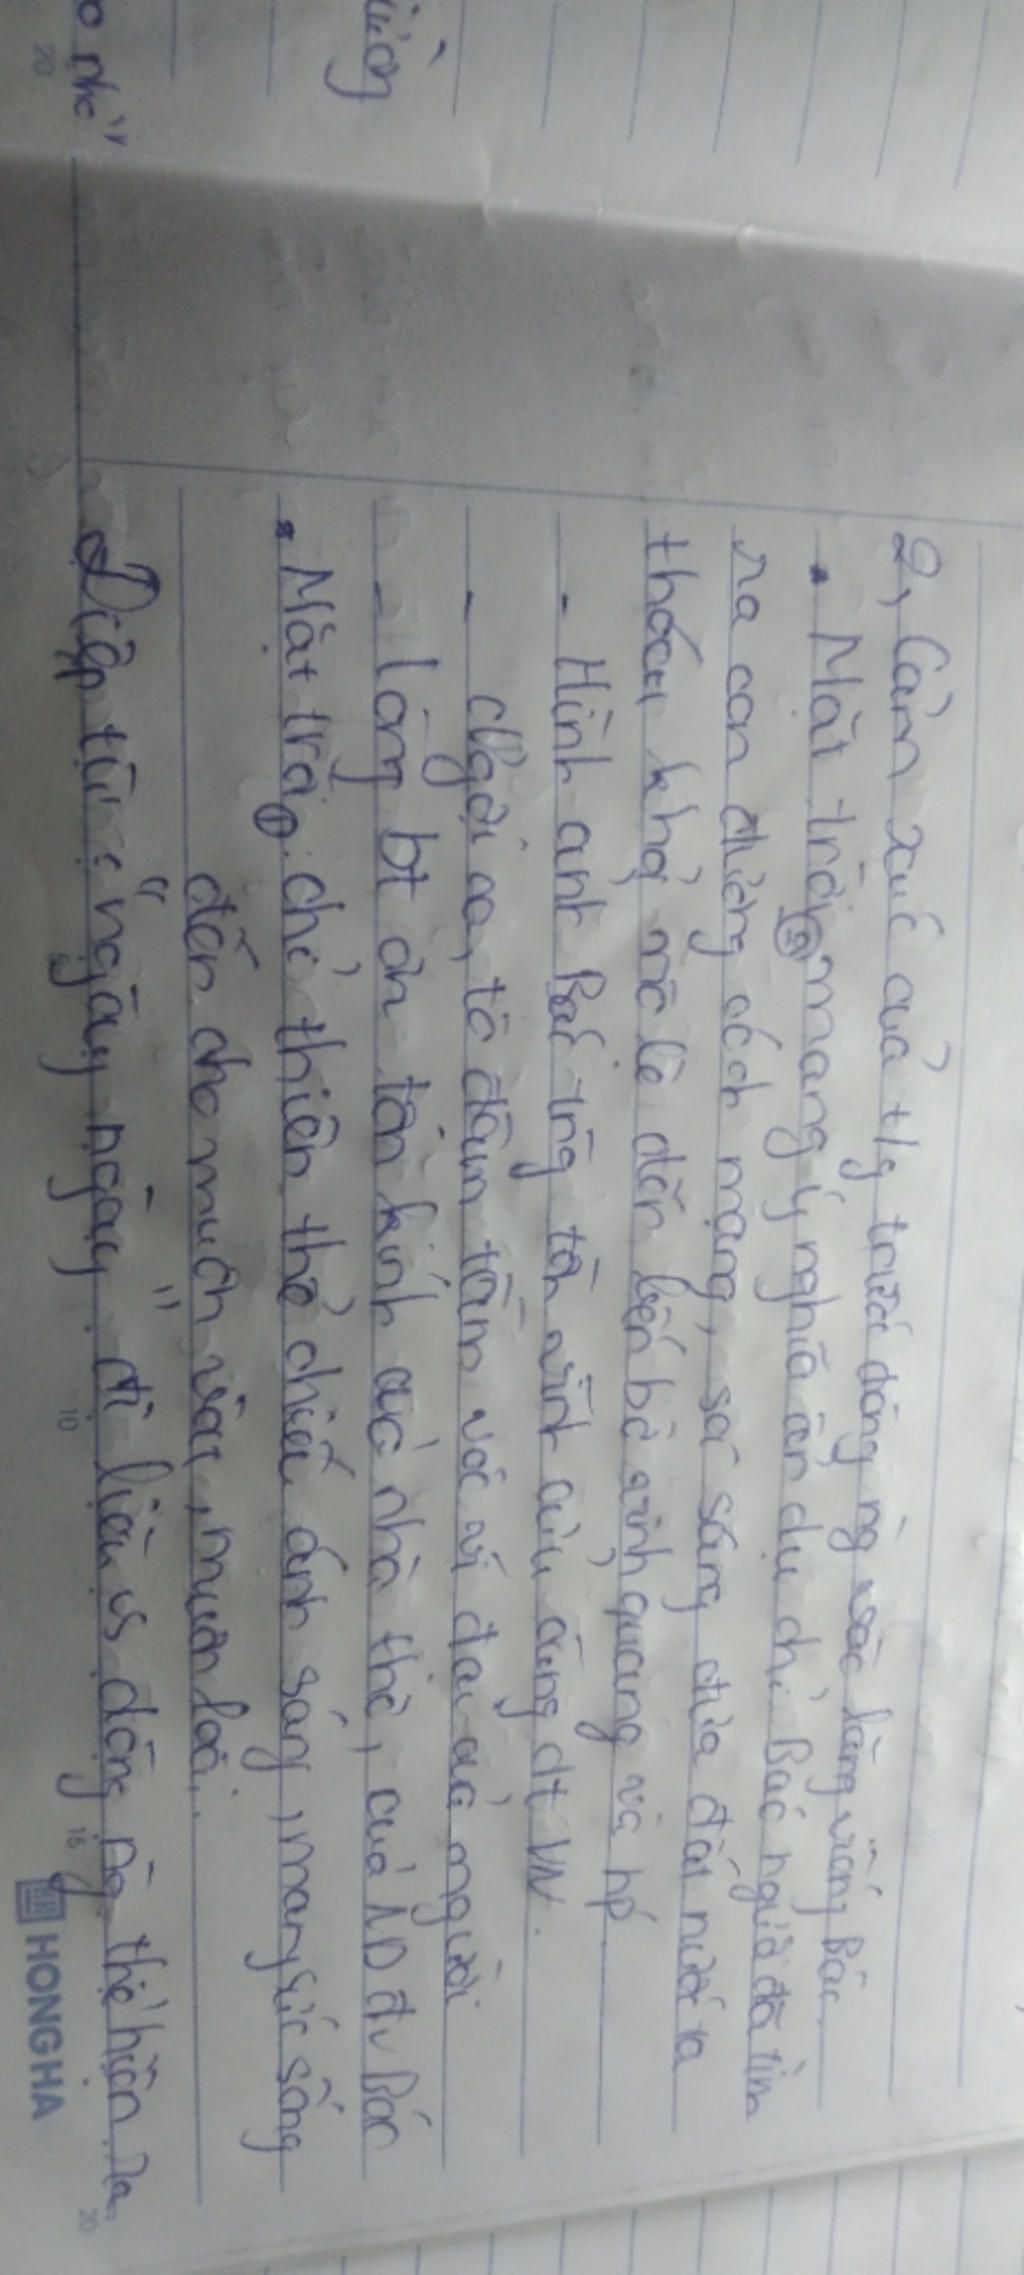 2, Cảm xúc của t/g trước dòng ng vào lăng viếng Bác.
• Mặt trời ② mang ý nghĩa ẩn dụ chỉ Bác người đã tìm
ra con đường cách mạng, soi sáng đưa đất nước ta
thoát khỏi nô lệ đến bến bờ vinh quang và hp.
- Hình ảnh Bác trg tôn vinh của cùng dt VN.
- Ngợi ca, tô đậm tầm vóc vĩ đại của người
- lòng bt ơn tôn kính của nhà thơ, của ND đv Bác
• Mặt trời ①: chỉ thiên thể chiếu ánh sáng, mang sức sống
đến cho muôn vật, muôn loài.
Điệp từ: "ngày ngày" đi liền vs dòng ng thể hiện ra
ường
nhỏ"
10
15
20
20
HONG HA